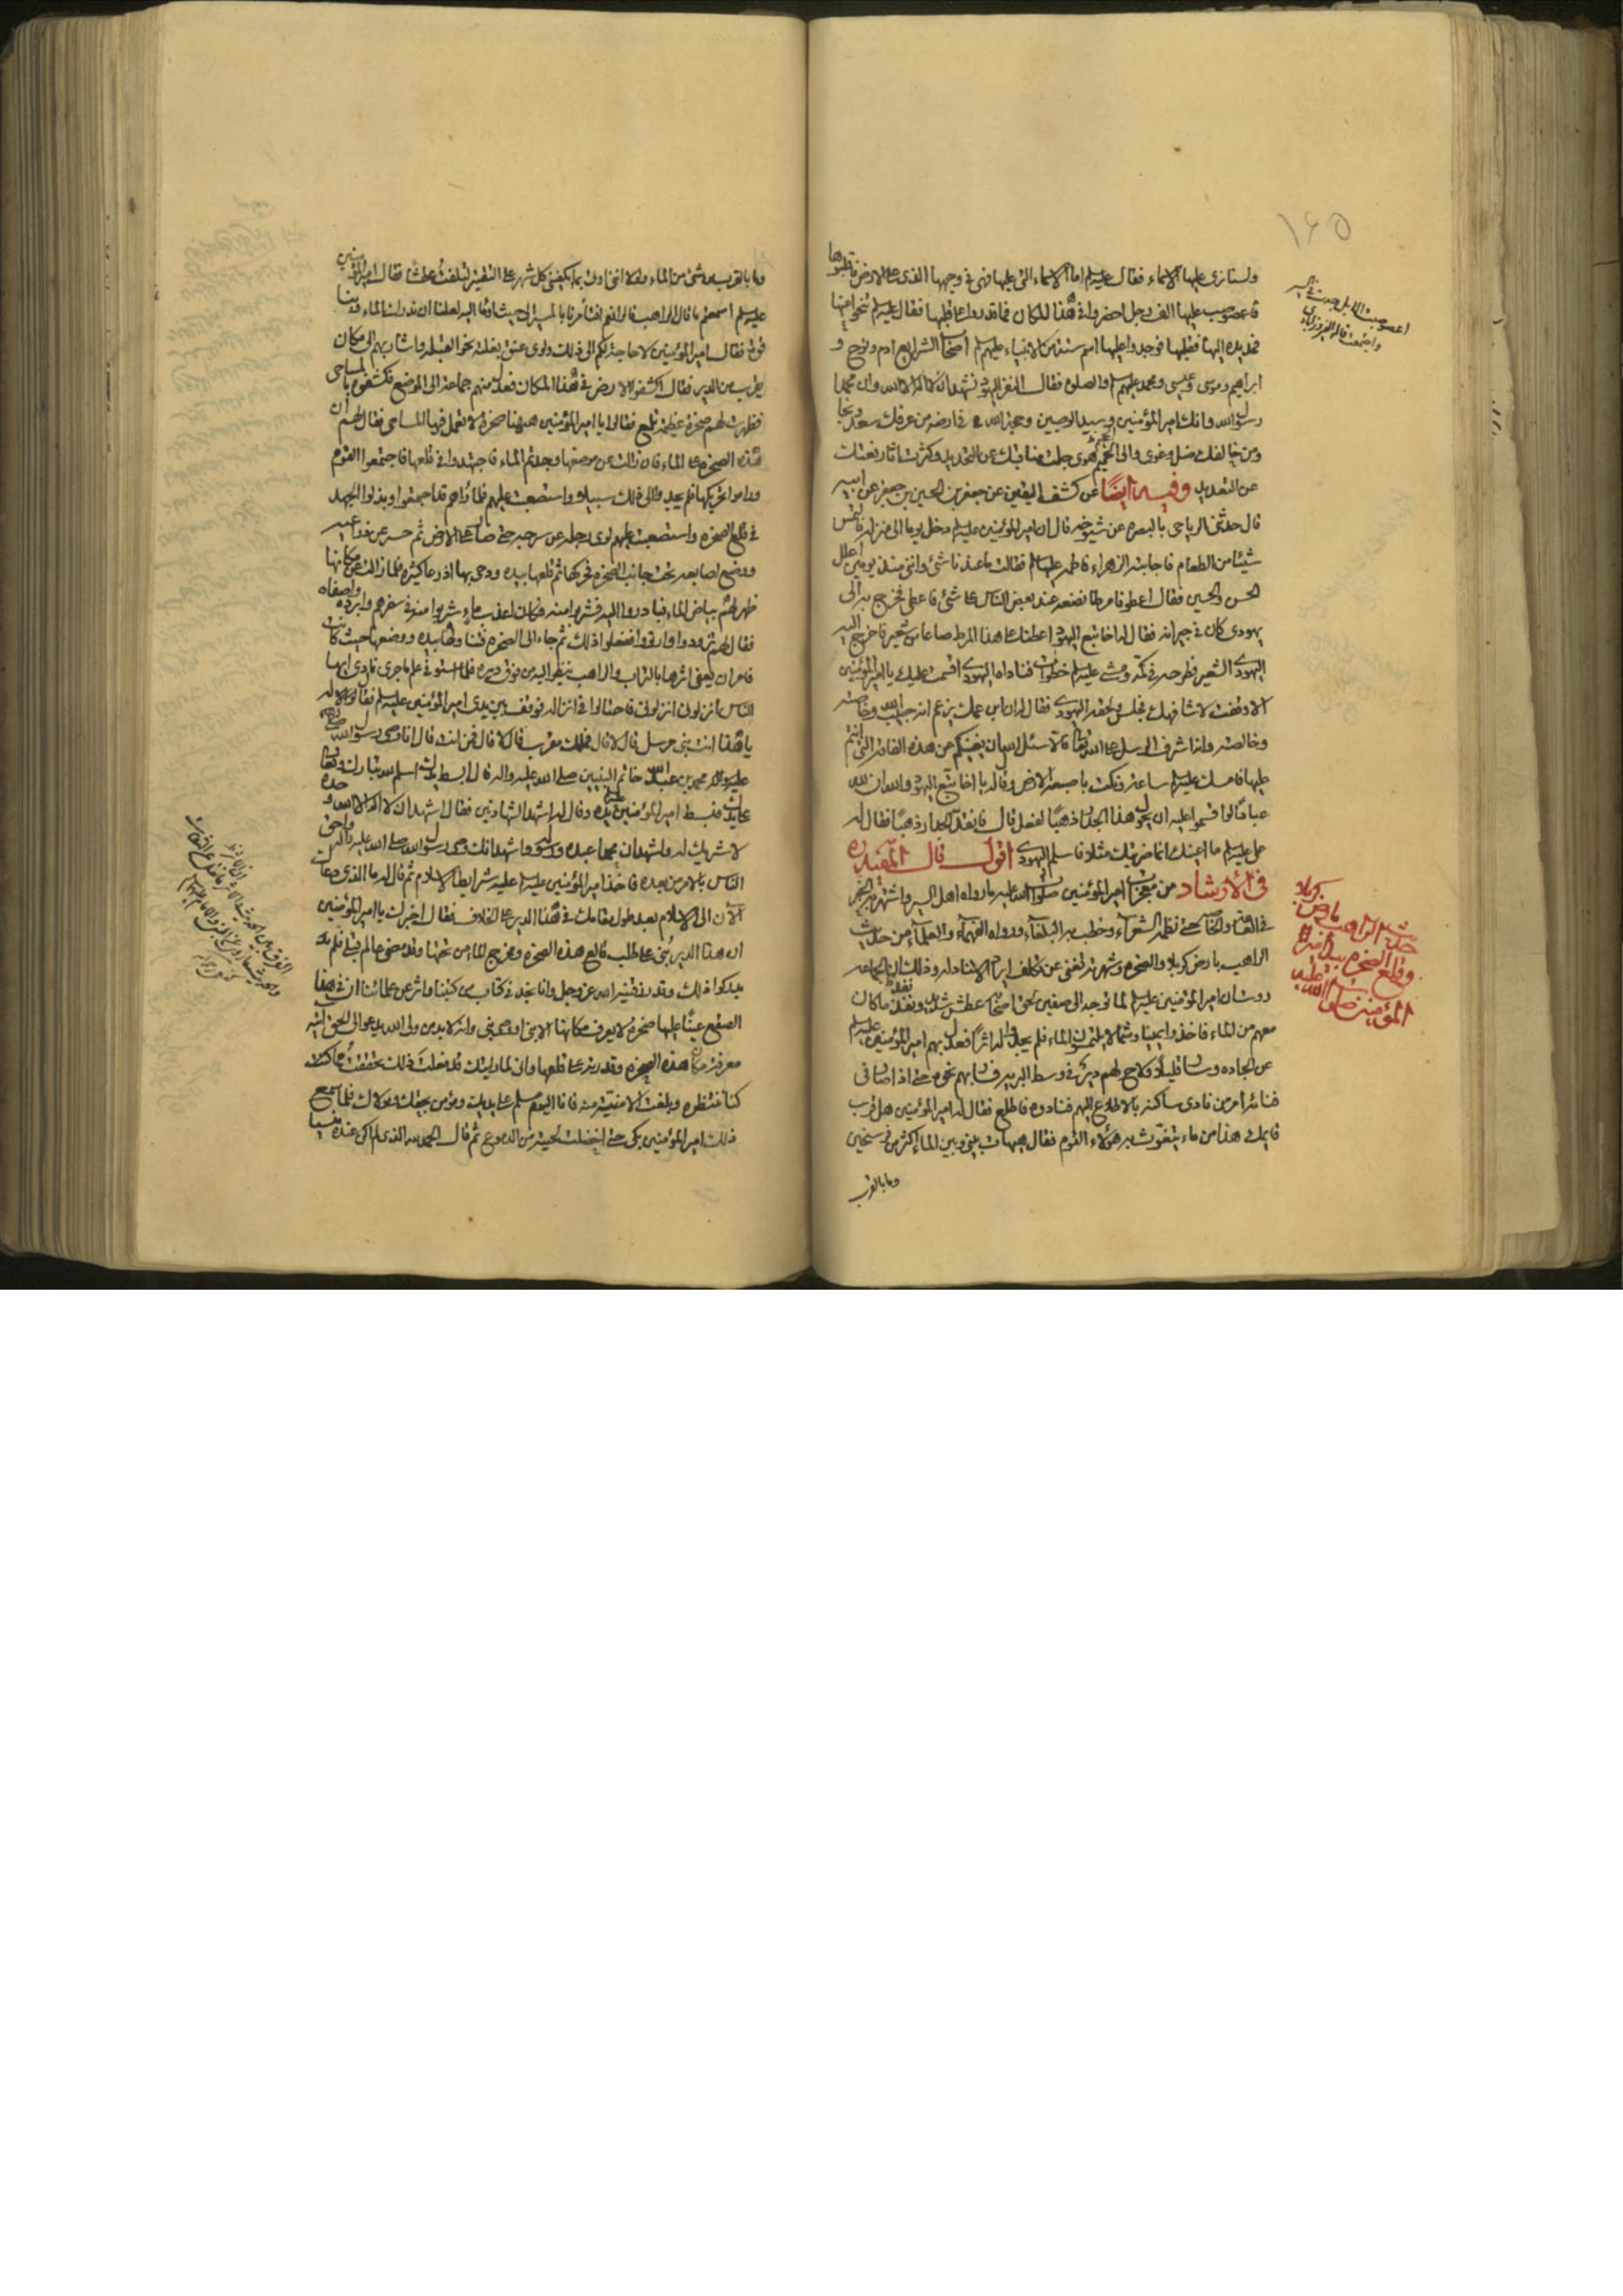 ١٦٥
ولسنا نرى عليها الاسماء فقال عليه السلم اما الاسماء التي عليها فهي في وجهها الذي على الارض فاقلبوها
فاعصوصب عليها الف رجل احضروا في هذا المكان فما قدروا على قلبها فقال عليه السلم تنحوا عنها
فمد يده اليها فقلبها فوجدوا عليها اسم ستة من الانبياء عليهم السلم اصحاب الشرايع ادم ونوح و
ابراهيم وموسى وعيسى ومحمد عليهم السلم والصلوة فقال النفر اليهود نشهد ان لا اله الا الله وان محمدا
رسول الله وانك امير المؤمنين وسيد الوصيين وحجة الله في ارضه من عرفك سعد ونجا
ومن خالفك ضل وغوى والى الجحيم هوى جلت مناقبك عن التحديد وكثرت اثار نعتك
عن التعديد وفيه ايضا عن كشف اليقين عن جعفر بن الحسين بن جعفر عن ابيه
قال حدثني الرياحي بالبصرة عن شيوخه قال ان امير المؤمنين عليه السلم دخل يوما الى منزله فالتمس
شيئا من الطعام فاجابته الزهراء فاطمة عليها السلم فقالت ما عندنا شئ وانني منذ يومين اعلل
الحسن والحسين فقال اعطونا مرطا نضعه عند بعض الناس على شئ فاعطي فخرج به الى
يهودي كان في جيرانه فقال له اخا تبع اليهود اعطنا على هذا المرط صاعا من شعير فاخرج اليه
اليهودي الشعير فطرحه في كمه ومشى عليه السلم خطوات فناداه اليهودي اقسمت عليك يا امير المؤمنين
الا وقفت لاشافهك فجلس ولحقه اليهودي فقال له ان ابن عمك يزعم انه حبيب الله وخاصته
وخالصته وانه اشرف الرسل على الله تعالى فالا سئل الله ان يغنيكم من هذه الفاقة التي انتم
عليها فامسك عليه السلم ساعة ونكت باصبعه الارض وقال له يا اخا تبع اليهود والله ان لله
عبادا لو اقسموا عليه ان يحول هذا الجدار ذهبا لفعل قال فاتقد الجدار ذهبا فقال له
على عليه السلم ما اعنيك انما ضربتك مثلا فاسلم اليهودي اقول قال المفيد ره
في الارشاد من معجزات امير المؤمنين صلوات الله عليه ما رواه اهل السير واشتهر به الخبر
في العامة والخاصة حتى نظمه الشعراء وخطب به البلغاء ورواه الفهماء والعلماء من حديث
الراهب بارض كربلا والصخرة وشهرته تغني عن تكلف ايراد الاسناد له وذلك ان الجماعة
روت ان امير المؤمنين عليه السلم لما توجه الى صفين لحق اصحابه عطش شديد ونفد ما كان
معهم من الماء فاخذوا يمينا وشمالا يلتمسون الماء فلم يجدوا له اثرا فعدل بهم امير المؤمنين عليه السلم
عن الجادة وسار قليلا فلاح لهم دير في وسط البرية فسار بهم نحوه حتى اذا صار في
فنائه امر من نادى ساكنه بالاطلاع اليهم فنادوه فاطلع فقال له امير المؤمنين هل قرب
قائمك هذا من ماء يتغوث به هؤلاء القوم فقال هيهات بيني وبين الماء اكثر من فرسخين
وما بالقرب
اعصوصبت الابل جدت في السير
واجتمعت قاله الفيروزابادي
حديث الراهب بارض كربلا
وقلع الصخرة بيد امير
المؤمنين صلوات الله عليه
وما بالقرب مني شئ من الماء ولولا انني اوتى بما يكفيني كل شهر على التقتير لتلفت عطشا فقال امير المؤمنين
عليه السلم اسمعتم ما قال الراهب قالوا نعم افتأمرنا بالمسير الى حيث اومأ اليه لعلنا ان ندرك الماء وبنا
قوة فقال امير المؤمنين لا حاجة بكم الى ذلك ولوى عنق بغلته نحو القبلة واشار بهم الى مكان
يقرب من الدير فقال اكشفوا الارض في هذا المكان فعدل منهم جماعة الى الموضع فكشفوه بالمساحي
فظهرت لهم صخرة عظيمة تلمع فقالوا يا امير المؤمنين ههنا صخرة لا تعمل فيها المساحي فقال لهم ان
هذه الصخرة على الماء فان زالت عن موضعها وجدتم الماء فاجتهدوا في قلعها فاجتمعوا القوم
وراموا تحريكها فلم يجدوا الى ذلك سبيلا واستصعبت عليهم فلما راهم قد اجتمعوا وبذلوا الجهد
في قلع الصخرة واستصعبت عليهم لوى رجله عن سرجه حتى صار على الارض ثم حسر عن ذراعيه
ووضع اصابعه تحت جانب الصخرة فحركها ثم قلعها بيده ودحى بها اذرعا كثيرة فلما زالت عن مكانها
ظهر لهم بياض الماء فبادروا اليه فشربوا منه فكان اعذب ماء شربوا منه في سفرهم وابرده واصفاه
فقال لهم تزودوا وارتووا ففعلوا ذلك ثم جاء الى الصخرة فتناولها بيده ووضعها حيث كانت
فامر ان يعفى اثرها بالتراب والراهب ينظر اليه من فوق ديره فلما استوفى علم ما جرى نادى ايها
الناس انزلوني انزلوني فاحتالوا في انزاله فوقف بين يدي امير المؤمنين عليه السلم فقال له
يا هذا انت نبي مرسل قال لا قال فملك مقرب قال لا قال فمن انت قال انا وصي رسول الله
محمد بن عبد الله خاتم النبيين صلى الله عليه واله قال ابسط يدك اسلم لله تبارك وتعالى
على يدك فبسط امير المؤمنين عليه السلم يده وقال له اشهد الشهادتين فقال اشهد ان لا اله الا الله وحده
لا شريك له واشهد ان محمدا عبده ورسوله واشهد انك وصي رسول الله صلى الله عليه واله واحق
الناس بالامر من بعده فاخذ امير المؤمنين عليه السلم عليه شرايط الاسلام ثم قال له ما الذي دعاك
الان الى الاسلام بعد طول مقامك في هذا الدير على الخلاف فقال اخبرك يا امير المؤمنين
ان هذا الدير بني على طلب قالع هذه الصخرة ومخرج الماء من تحتها وقد مضى عالم قبلي فلم
يدركوا ذلك وقد رزقنيه الله عز وجل وانا نجد في كتاب من كتبنا واثر عن علمائنا ان في هذا
الصقع عينا عليها صخرة لا يعرف مكانها الا نبي او وصي نبي وانه لا بد من ولي الله يدعو الى الحق ايته
معرفة مكان هذه الصخرة وقدرته على قلعها واني لما رايتك قد فعلت ذلك تحققت ما
كنا ننتظره وبلغت الامنية منه فانا اليوم مسلم على يديك ومؤمن بحقك ومولاك فلما سمع
ذلك امير المؤمنين بكى حتى اخضلت لحيته من الدموع ثم قال الحمد لله الذي لم اكن عنده منسيا